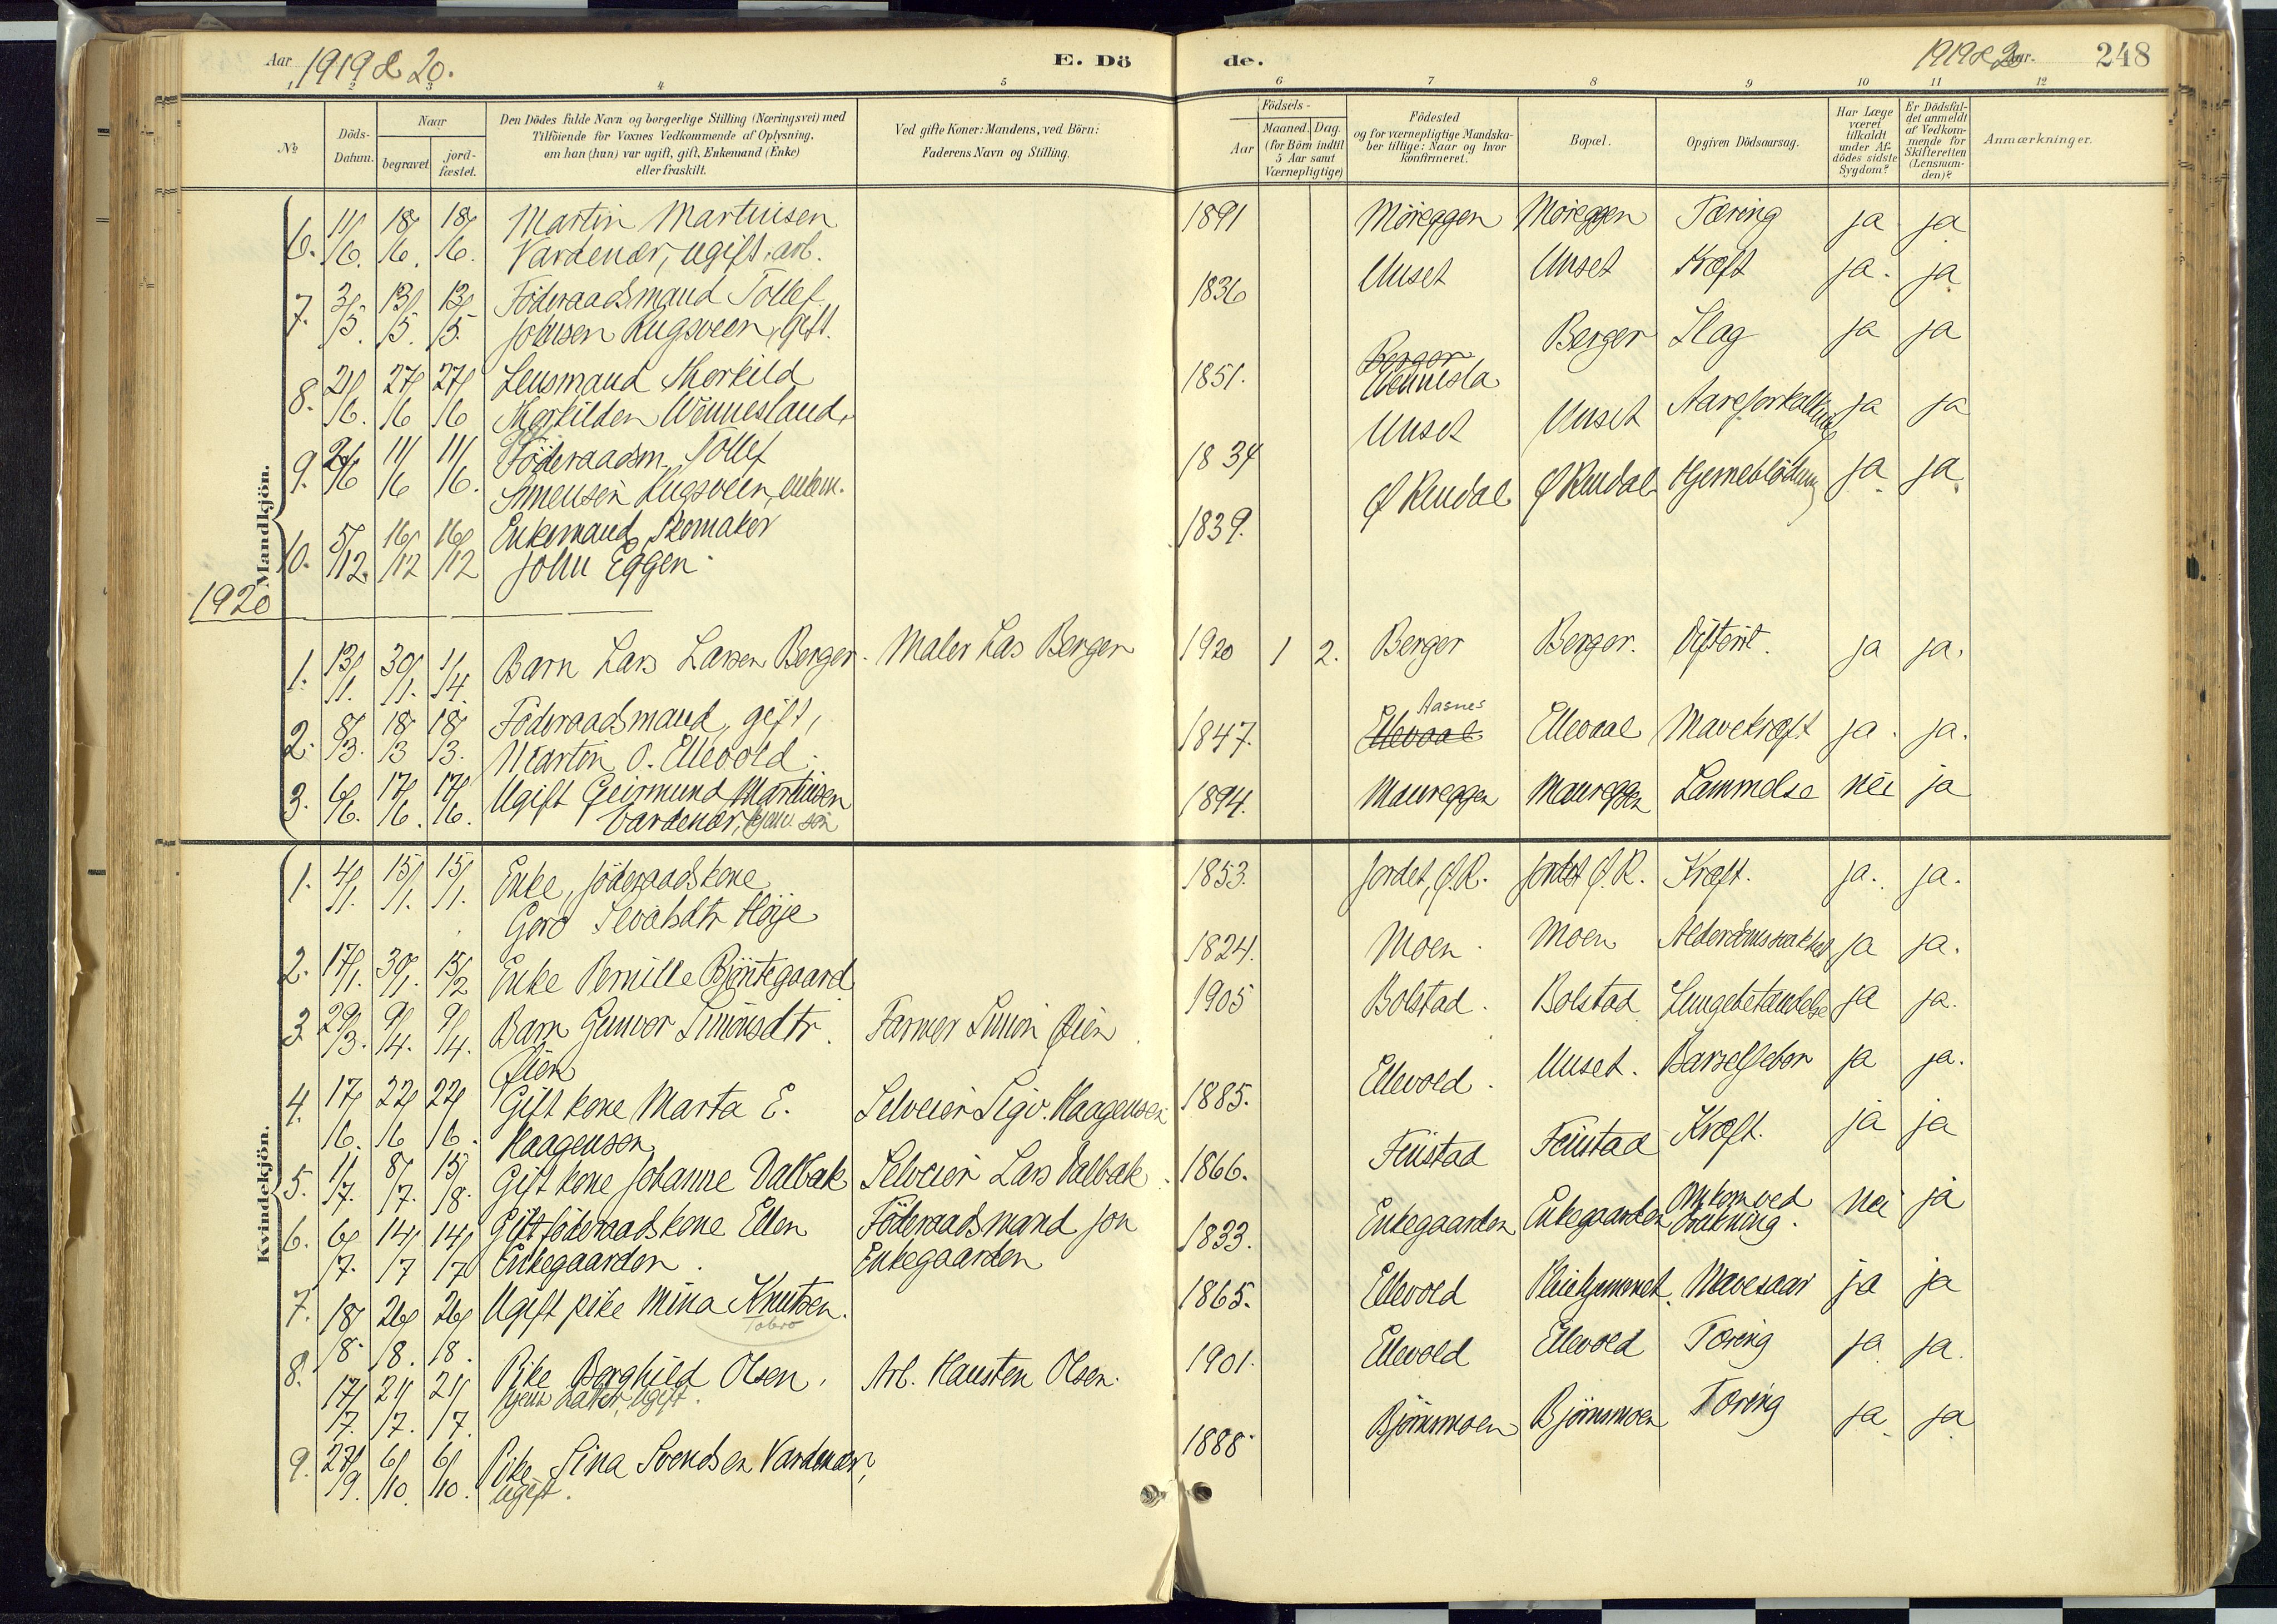 Aar 1919 & 20.
E. Dö de.
1919 & 20 Aar.
248
1 2 3 4 5 6 7 8 9 10 11 12
No
Döds-Datum.
Naar
begravet
jord-fæstet.
Den Dödes fulde Navn og borgerlige Stilling (Næringsvei) med
Tilföiende for Voxnes Vedkommende af Oplysning,
om han (hun) var ugift, gift, Enkemand (Enke)
eller fraskilt.
Ved gifte Koner: Mandens, ved Börn:
Faderens Navn og Stilling.
Födsels-
Aar
Maaned. Dag.
(for Börn indtil
5 Aar samt
Værnepligtige)
Födested
og for værnepligtige Mandska-
ber tillige: Naar og hvor
konfirmeret.
Bopæl.
Opgiven Dödsaarsag.
Har Læge
været
tilkaldt
under Af-
dödes sidste
Sygdom?
Er Dödsfal-
det anmeldt
af Vedkom-
mende for
Skifteretten
(Lensman-
den)?
Anmærkninger.
Mandkjön.
6. 11/6. 18/6. 18/6. Martin Martinsen 1891 Möreggen Moreggen Tæring ja ja
Vardenær, ugift, arb.
7. 3/5. 13/5. 13/5. Föderaadsmand Tollef 1836 Unset Unset Kræft ja. ja
Johnsen Rugsveen, Gift.
8. 21/6. 27/6 27/6 Lensmand Therkild 1851. Berger Vennesla Berger Slag ja ja
Therkildsen Wennesland.
9. 2/6 11/6 11/6. Föderaadsm. Tollef 1834 Unset Unset Aareforkalkning ja ja
Simensen Rugsveen, enkem.
10. 5/12. 16/12 16/12 Enkemand, Skomaker 1839. Ø Rendal Ø Rendal Hjerneblödning ja ja
John Eggen.
1920
1. 13/1. 30/1. 1/4. Barn Lars Larsen Berger. Maler Las Berger 1920 1 2. Berger Berger. Difterit. ja ja.
2. 8/3. 18/3 18/3. Föderaadsmand, gift, 1847. Ellevaal Aasnes Ellevaal Mavekræft ja. ja.
Martin O. Ellevold.
3. 6/6. 17/6. 17/6. Ugift Geirmund Martinsen 1894. Maureggen Maureggen Lammelse nei ja
Vardenær, hjem. sön
Kvindekjön.
1. 4/1. 15/1. 15/1. Enke, föderaadskone 1853. Jordet, Ø.R. Jordet Ø.R. Kræft. ja. ja.
Goro Sevalsdtr Höije
2. 17/1. 30/1. 15/2 Enke Pernille Bjöntegaard 1824. Moen. Moen Alderdomssvakhet ja ja.
3 29/3. 9/4. 9/4. Barn Gunvor Simonsdtr. Farmer Simon Øien 1905 Bolstad. Bolstad Lungebetændelse ja ja.
Øien
4. 17/6. 22/6 22/6. Gift kone Marta E. Selveier Sigv. Haagensen 1885. Ellevold. Unset. Barselfeber ja ja.
Haagensen
5. 11/7. 8/7. 15/8. Gift kone Johanne Dalbak Selveier Lars Dalbak. 1866. Finstad Finstad Kræft. ja ja
6. 6/7. 14/7 14/7 Gift föderaadskone Ellen Föderaadsmand Jon 1833. Enkegaarden Enkegaarden Omkom ved drukning. nei ja
Enkegaarden. Enkegaarden
7. 18/8. 26/8. 26/8. Ugift pike Mina Knutsen. 1865. Ellevold Pleiehjemmet. Mavesaar ja ja
Tobro
8. 17/7. 21/7. 21/7. Pike Borghild Olsen, Arb. Hansten Olsen. 1901. Ellevold Ellevold Tæring ja ja.
hjem. datter, ugift.
9. 27/9. 6/10. 6/10. Pike Sina Svendsen Vardenær, 1888 Bjørnmoen Bjørnmoen Tæring ja ja
ugift.